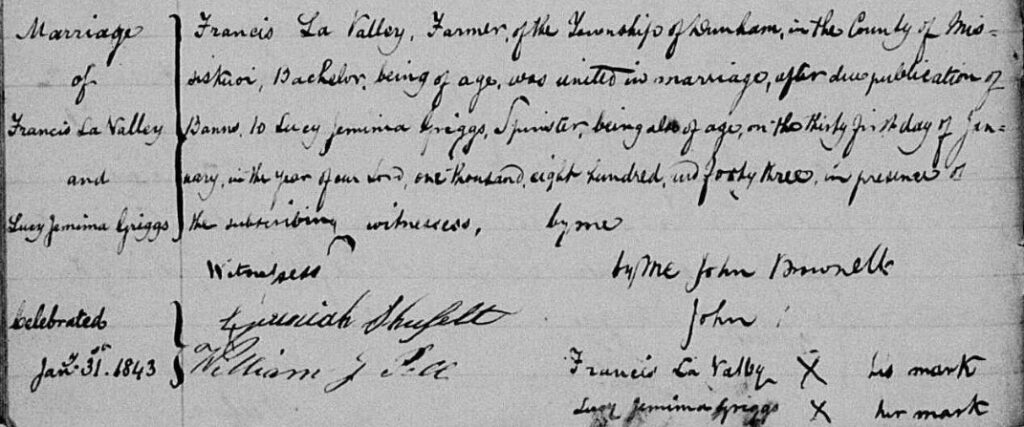 Marriage
of
Francis La Valley
and
Lucy Jemima Griggs
Francis La Valley, Farmer, of the Township of Dunham, in the County of Mis=
siskuoi, Bachelor, being of age, was united in marriage, after due publication of
Banns, to Lucy Jemima Griggs, Spinster, being also of age, on the thirty first day of Jan=
uary, in the year of our Lord, one thousand, eight hundred, and forty three, in presence of
the subscribing witnessess, by me
Witnessess
by Me John Brownell
Celebrated
Jany. 31st. 1843
Jeremiah Shufelt
John
William J
Francis La Valley X his mark
Lucy Jemima Griggs X her mark